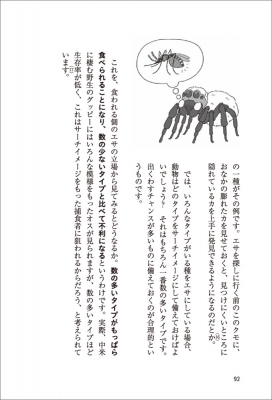 の一種がその例です。エサを探しに行く前のこのクモに、
おなかの膨れたカを見せておくと、見つけにくいところに
隠れているカを上手に発見できるようになるのだとか。
では、いろんなタイプがいる種をエサにしている場合、
動物はどのタイプをサーチイメージにして備えておけばよ
いでしょう？　それはもちろん一番数の多いタイプです。
出くわすチャンスが多いものに備えておくのが合理的とい
うものです。
これを、食われる側のエサの立場から見てみるとどうなるか。数の多いタイプがもっぱら
食べられることになり、数の少ないタイプと比べて不利になるというわけです。実際、中米
に棲む野生のグッピーにはいろんな模様をもったオスが見られますが、数の多いタイプほど
生存率が低く、これはサーチイメージをもった捕食者に狙われるからだろう、と考えられて
います。
92